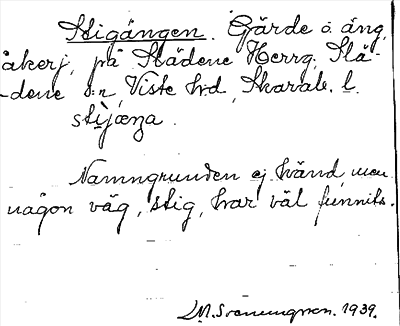 Stigängen. Gärde o. äng,
åkerj. på Slädene Herrg. Slä-
-dene sn, Viste hd, Skarab. l.
stijæŋa.
Namngrunden ej känd, men
någon väg, stig, har väl funnits.
M. 1939.